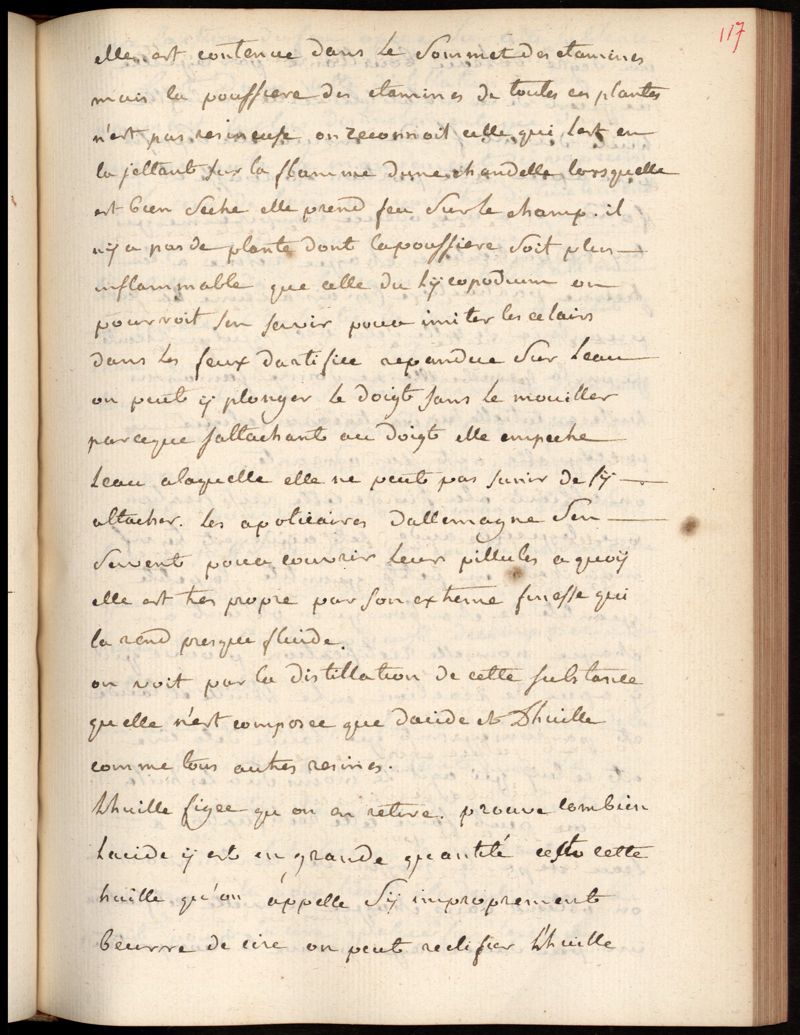 117
elle est contenue dans le sommet des etamines
mais la poussiere des etamines de toutes ces plantes
n'est pas resineuse on reconnoit celle qui lest en
la jettant sur la flamme dune chandelle lorsquelle
est bien seche elle prend feu sur le champ. il
ny a pas de plante dont la poussiere soit plus
inflammable que celle du lycopodium on
pourroit sen servir pour imiter les eclairs
dans les feux dartifice repandue sur leau
on peut y plonger le doigt sans le mouiller
parceque sattachant au doigt elle empeche
leau alaquelle elle ne peut pas sunir de sy
attacher. les apoticaires dallemagne sen
servent pour couvrir leur pillules a quoy
elle est tres propre par son extreme finesse qui
la rend presque fluide.
on voit par la distillation de cette substance
quelle n'est composee que dacide et Dhuille
comme tous autres resines.
Lhuille figee qu on en retire. prouve combien
Lacide y est en grande quantité cest cette
huille qu'on appelle sy improprement
beurre de cire on peut rectifier Lhuille